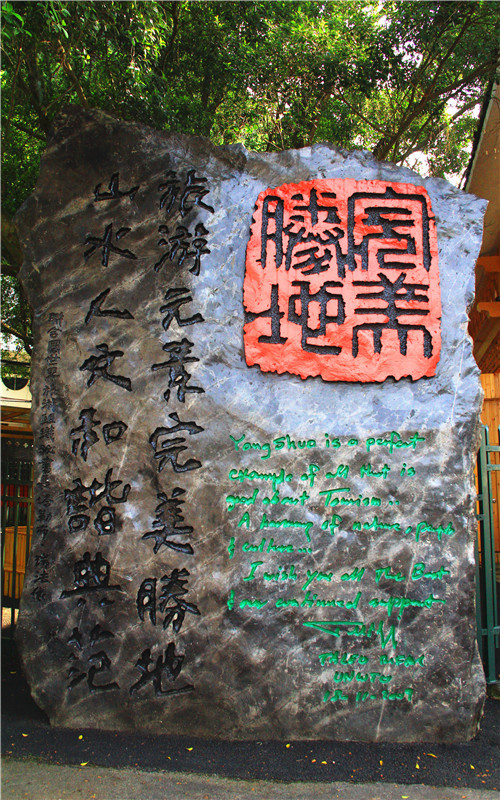 旅游元素完美勝地
山水人文和諧典范
完美
勝地
Yang Shuo is a perfect
example of all that is
good about Tourism...
A harmony of nature, people
& culture...
I wish you all The Best
& our continued support
UNWTO
18-11-2009